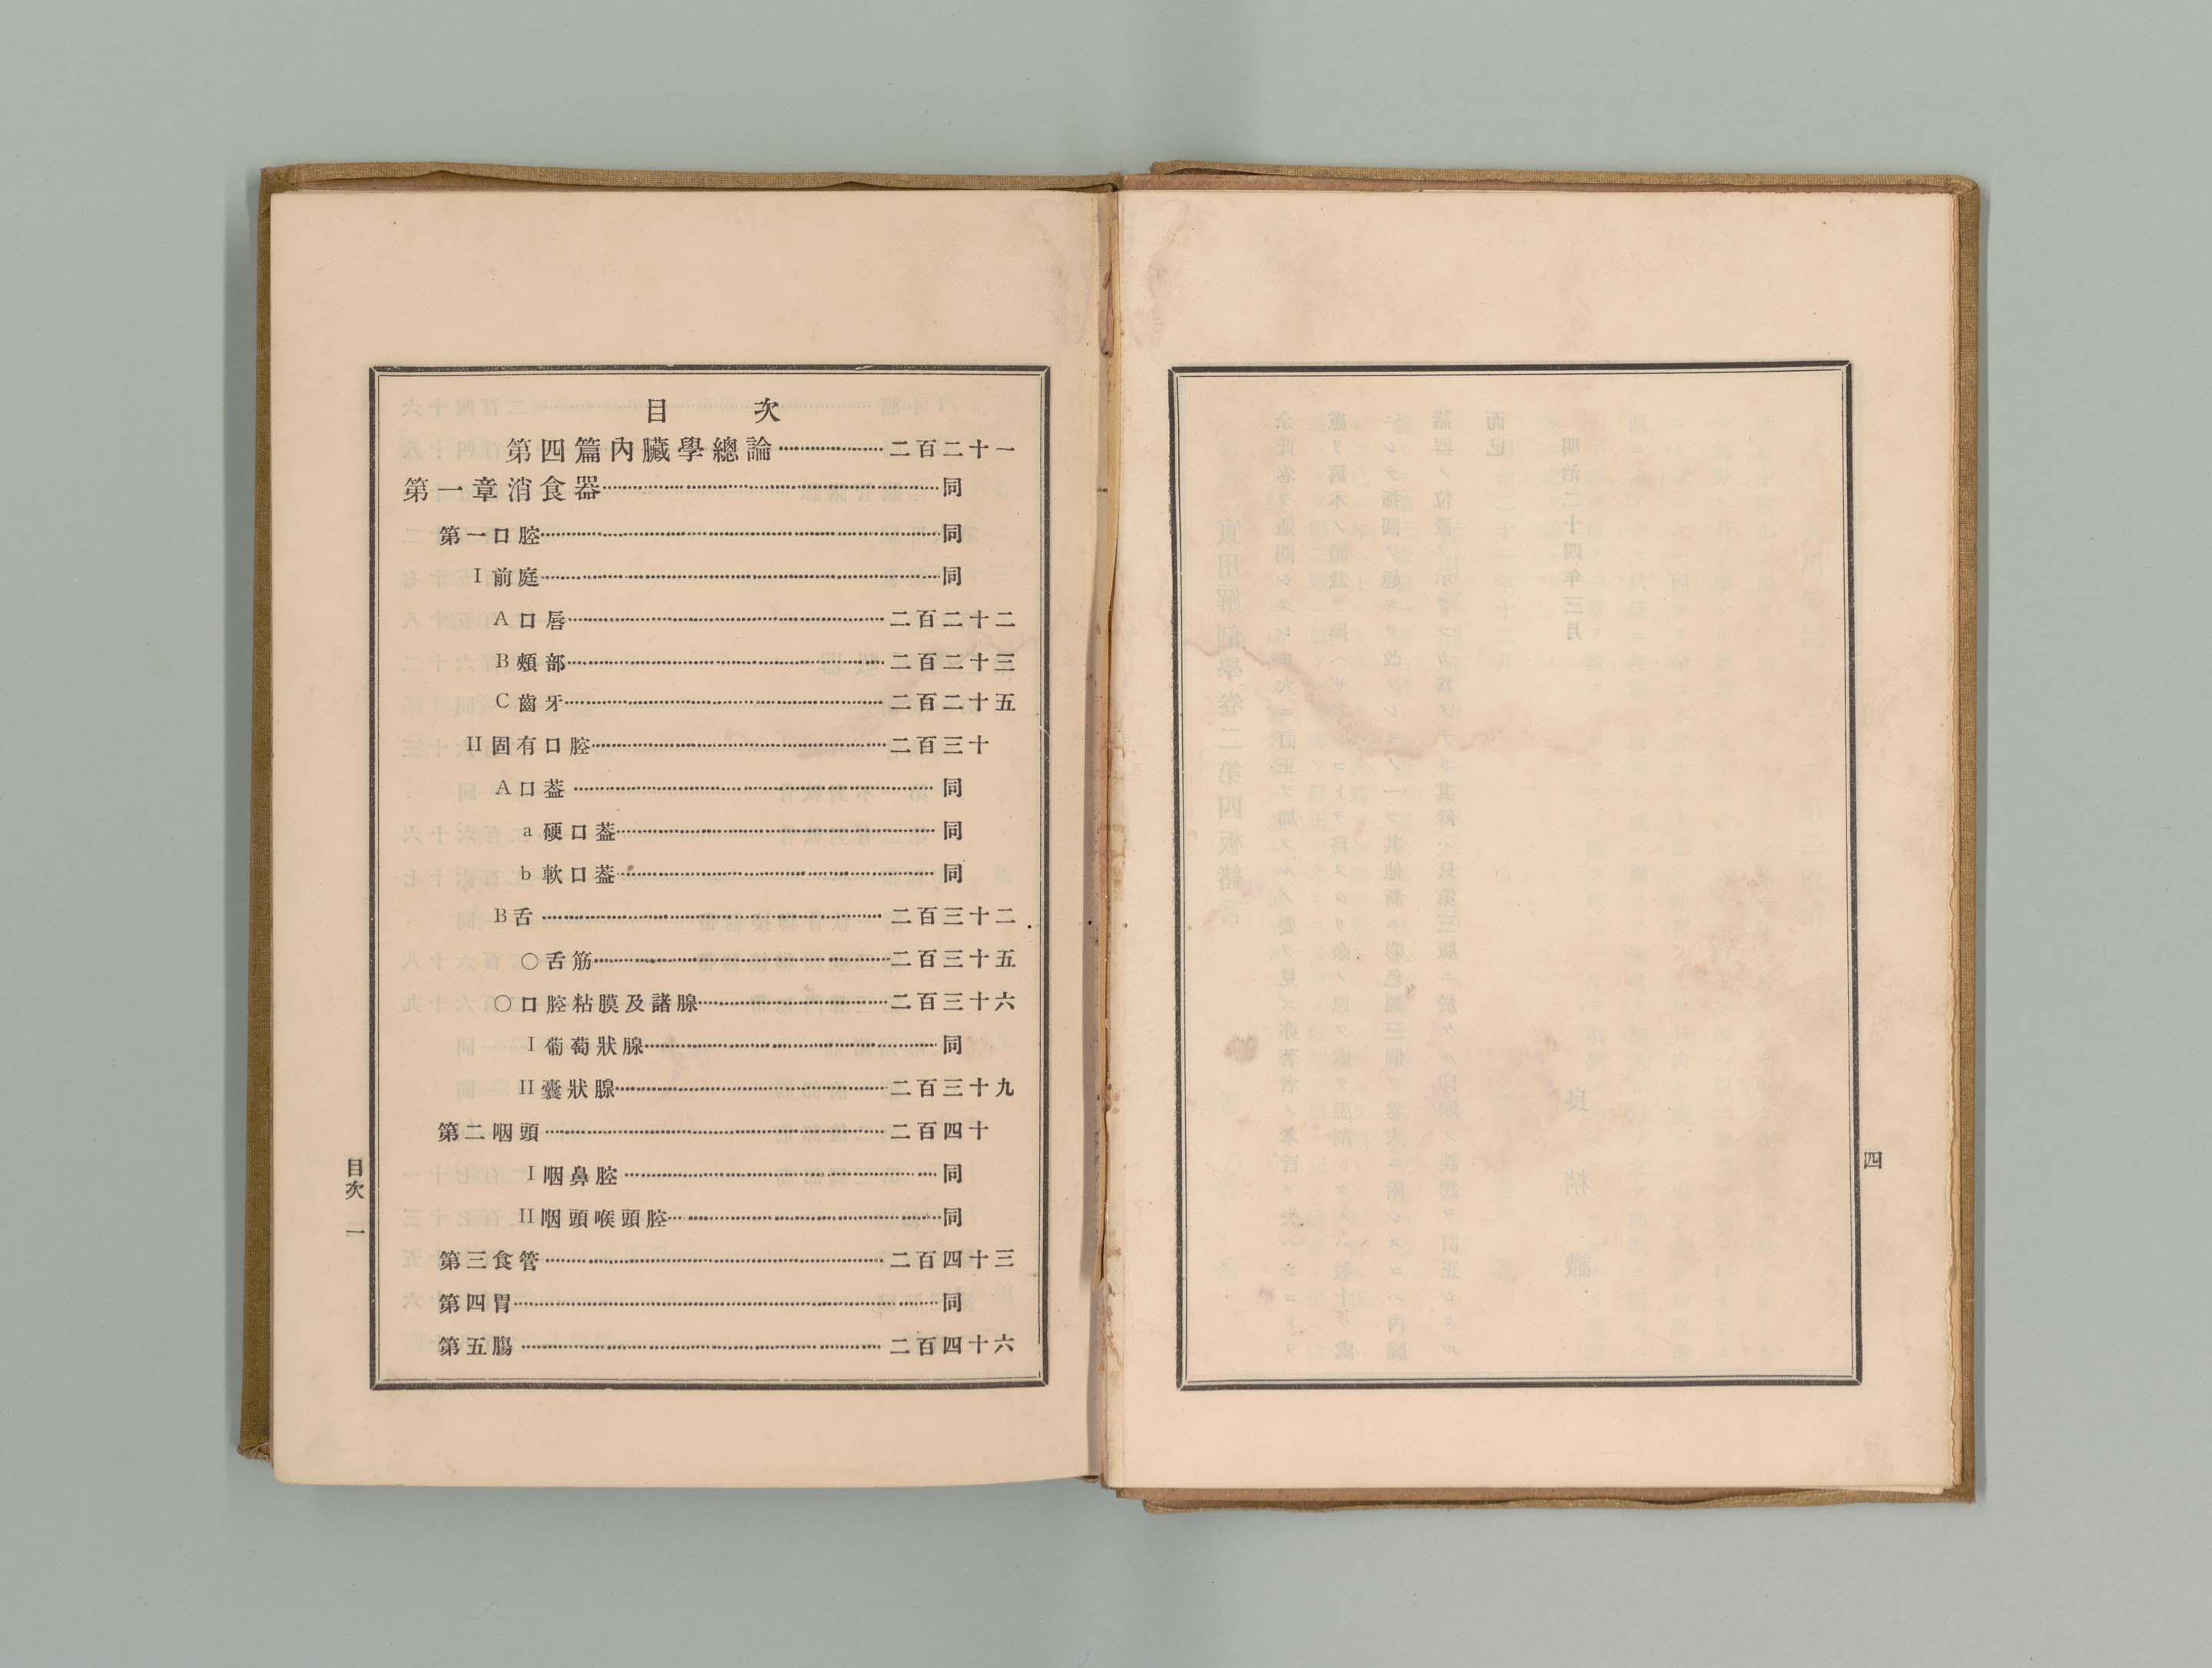 四
目次
第四篇內臟學總論………………二百二十一
第一章消食器………………同
第一口腔………………同
I前庭………………同
A口唇………………二百二十二
B頰部………………二百二十三
C齒牙………………二百二十五
II固有口腔………………二百三十
A口蓋………………同
a硬口蓋………………同
b軟口蓋………………同
B舌………………二百三十二
○舌筋………………二百三十五
○口腔粘膜及諸腺………………二百三十六
I葡萄狀腺………………同
II囊狀腺………………二百三十九
第二咽頭………………二百四十
I咽鼻腔………………同
II咽頭喉頭腔………………同
第三食管………………二百四十三
第四胃………………同
第五腸………………二百四十六
目次 一